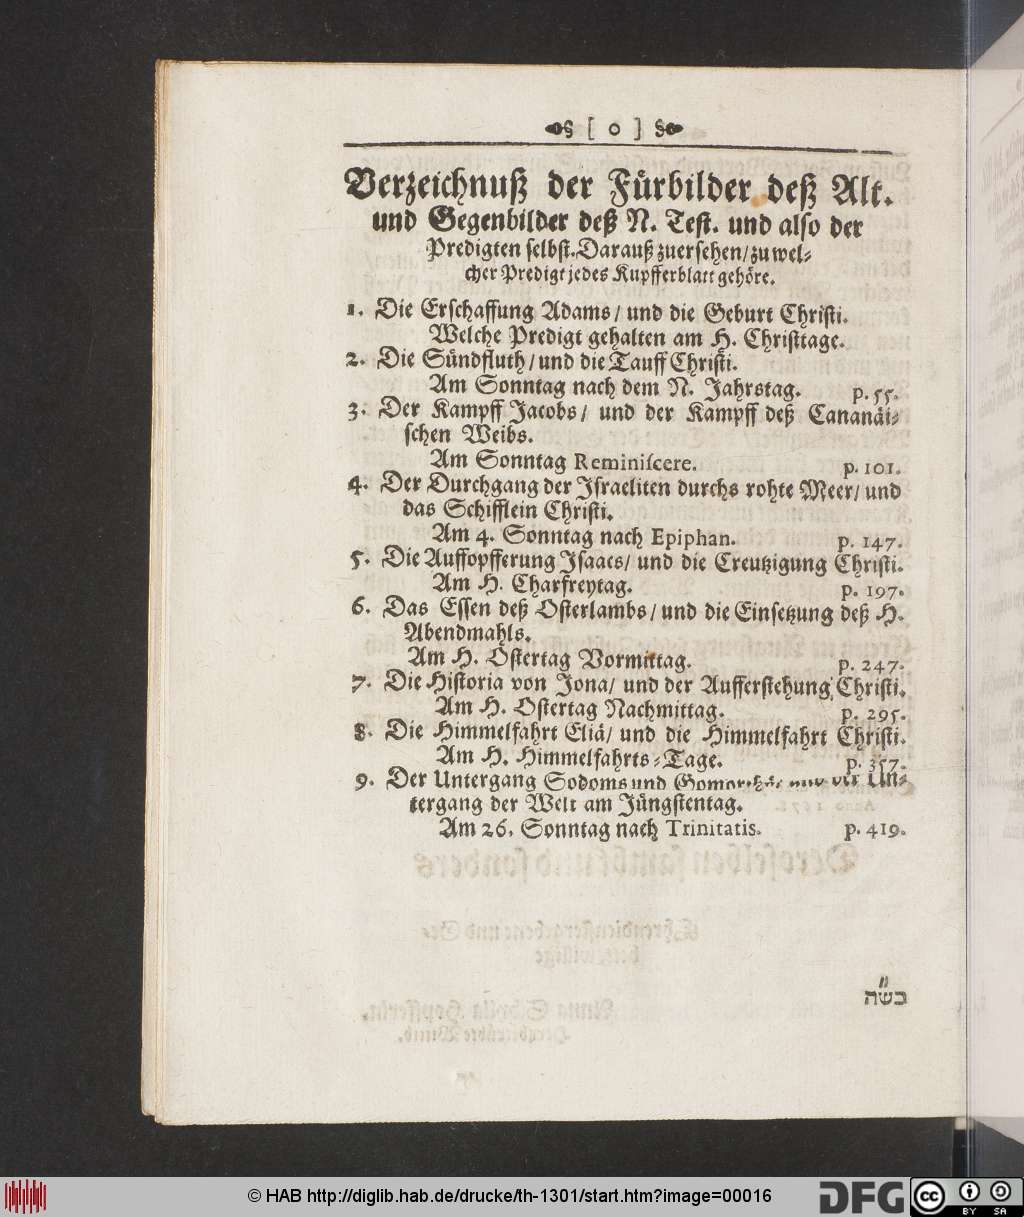 [ o ]
Verzeichnuß der Fürbilder deß Alt.
und Gegenbilder deß N. Test. und also der
Predigten selbst. Darauß zuersehen/ zu wel-
cher Predigt jedes Kupfferblatt gehöre.
1. Die Erschaffung Adams/ und die Geburt Christi.
Welche Predigt gehalten am H. Christtage.
2. Die Sündfluth/ und die Tauff Christi.
Am Sonntag nach dem N. Jahrstag. p. 55.
3. Der Kampff Jacobs/ und der Kampff deß Cananäi-
schen Weibs.
Am Sonntag Reminiscere. p. 101.
4. Der Durchgang der Israeliten durchs rohte Meer/ und
das Schifflein Christi.
Am 4. Sonntag nach Epiphan. p. 147.
5. Die Auffopfferung Isaacs/ und die Creutzigung Christi.
Am H. Charfreytag. p. 197.
6. Das Essen deß Osterlambs/ und die Einsetzung deß H.
Abendmahls.
Am H. Ostertag Vormittag. p. 247.
7. Die Historia von Jona/ und der Aufferstehung Christi.
Am H. Ostertag Nachmittag. p. 295.
8. Die Himmelfahrt Eliä/ und die Himmelfahrt Christi.
Am H. Himmelfahrts-Tage. p. 357.
9. Der Untergang Sodoms und Gomorrhäe und der Un-
tergang der Welt am Jüngstentag.
Am 26. Sonntag nach Trinitatis. p. 419.
בשה״
© HAB http://diglib.hab.de/drucke/th-1301/start.htm?image=00016
DFG
cc BY SA